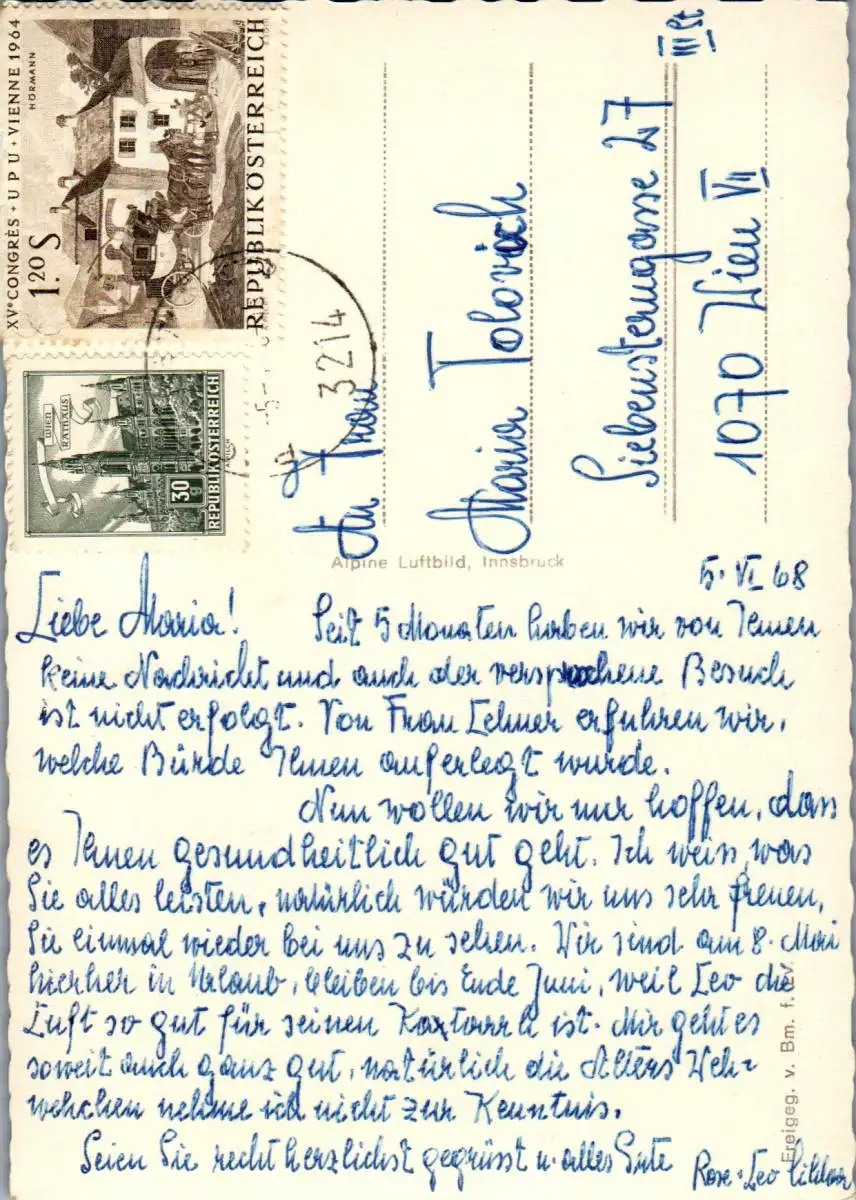 XVᵉ CONGRÈS · UPU · VIENNE 1964
HÖRMANN
1.20 S
REPUBLIK ÖSTERREICH
WIEN
RATHAUS
30 g
REPUBLIK ÖSTERREICH
3214
An Frau
Maria Tolovich
Siebensterngasse 27
III St
1070 Wien VII
Alpine Luftbild, Innsbruck
5. VI 68
Liebe Maria! Seit 5 Monaten haben wir von Ihnen
keine Nachricht und auch der versprochene Besuch
ist nicht erfolgt. Von Frau Lehner erfuhren wir,
welche Bürde Ihnen auferlegt wurde.
Nun wollen wir nur hoffen, dass
es Ihnen gesundheitlich gut geht. Ich weiss, was
Sie alles leisten, natürlich würden wir uns sehr freuen,
Sie einmal wieder bei uns zu sehen. Wir sind am 8. Mai
hierher in Urlaub, bleiben bis Ende Juni, weil Leo die
Luft so gut für seinen Katarrh ist. Mir geht es
soweit auch ganz gut, natürlich die Alters Weh-
wehchen nehme ich nicht zur Kenntnis.
Seien Sie recht herzlichst gegrüsst u. alles Gute
Rose + Leo
Freigeg. v. Bm. f. LV.